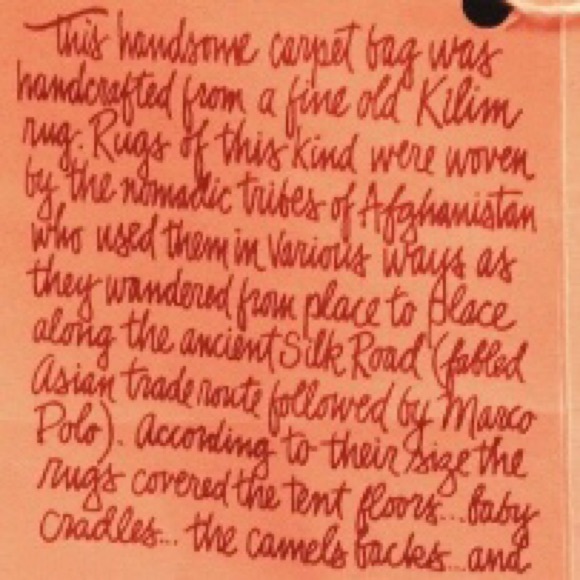 This handsome carpet bag was
handcrafted from a fine old Kilim
rug. Rugs of this kind were woven
by the nomadic tribes of Afghanistan
who used them in various ways as
they wandered from place to place
along the ancient Silk Road (fabled
Asian trade route followed by Marco
Polo). According to their size the
rugs covered the tent floors... baby
cradles... the camels backs... and